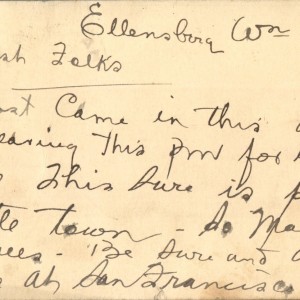 Ellensberg Wn
sh Folks
ost Came in this
eaving This pm for
This Sure is p
tle town - So Ma
ees - Be Sure and
at San Francisco